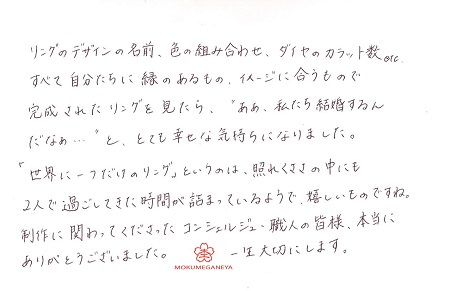 リングのデザインの名前、色の組み合わせ、ダイヤのカラット数etc.
すべて自分たちに縁のあるもの、イメージに合うもので
完成されたリングを見たら、〝ああ、私たち結婚するん
だなぁ…〟と、とても幸せな気持ちになりました。
「世界に一つだけのリング」というのは、照れくささの中にも
2人で過ごしてきた時間が詰まっているようで、嬉しいものですね。
制作に関わってくださったコンシェルジュ・職人の皆様、本当に
ありがとうございました。 一生大切にします。
MOKUMEGANEYA